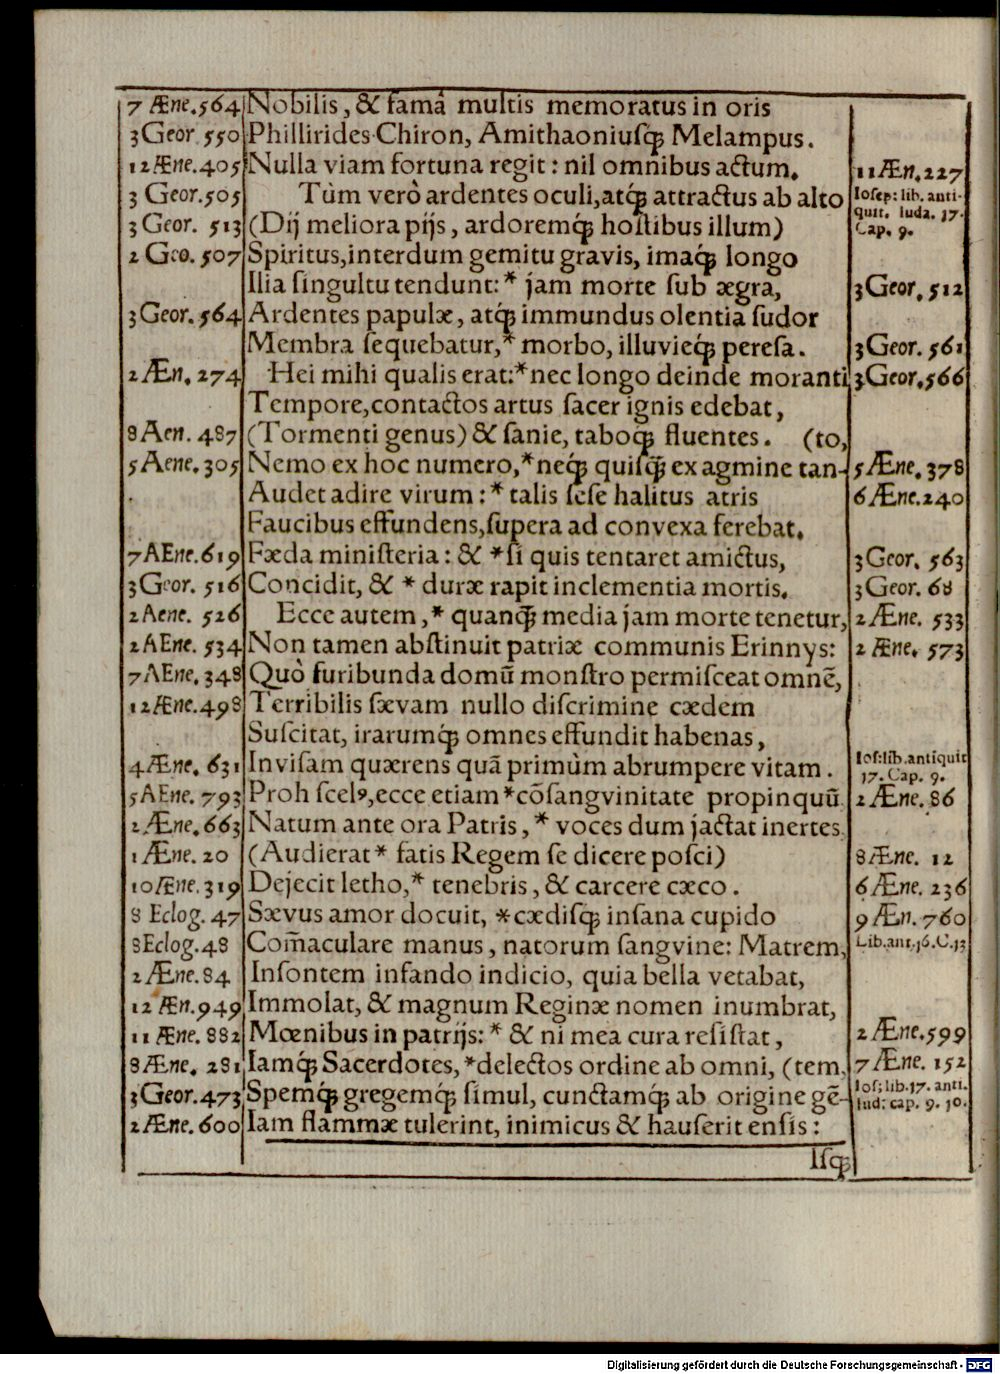 7 Æne.564 Nobilis, & famâ multis memoratus in oris
3 Geor. 550 Phillirides Chiron, Amithaoniuſq́; Melampus.
12 Æne.405 Nulla viam fortuna regit: nil omnibus actum. 11 Æn. 227
3 Geor.505 Tùm verò ardentes oculi, atq́; attractus ab alto Ioſep: lib. anti-
3 Geor. 513 (Dij meliora pijs, ardoremq́; hoſtibus illum) quit. Iuda. 17. Cap. 9.
2 Geo. 507 Spiritus, interdum gemitu gravis, imaq́; longo
Ilia ſingultu tendunt: * jam morte ſub ægra, 3 Geor. 512
3 Geor. 564 Ardentes papulæ, atq́; immundus olentia ſudor
Membra ſequebatur, * morbo, illuvieq́; pereſa. 3 Geor. 561
2 Æn. 274 Hei mihi qualis erat: * nec longo deinde moranti 3 Geor. 566
Tempore, contactos artus ſacer ignis edebat,
8 Aen. 487 (Tormenti genus) & ſanie, taboq́; fluentes. (to,
5 Aene. 305 Nemo ex hoc numero, * neq́; quiſq̃; ex agmine tan- 5 Æne. 378
Audet adire virum: * talis ſeſe halitus atris 6 Æne.240
Faucibus effundens, ſupera ad convexa ferebat.
7 AEne.619 Fæda miniſteria: & * ſi quis tentaret amictus, 3 Geor. 563
3 Geor. 516 Concidit, & * duræ rapit inclementia mortis. 3 Geor. 68
2 Aene. 526 Ecce autem, * quanq̃; media jam morte tenetur, 2 Æne. 533
2 AEne. 534 Non tamen abſtinuit patriæ communis Erinnys: 2 Æne. 573
7 AEne. 348 Quò furibunda domũ monſtro permiſceat omnẽ,
12 Æne.498 Terribilis ſævam nullo diſcrimine cædem
Suſcitat, irarumq́; omnes effundit habenas,
4 Æne. 631 Inviſam quærens quã primùm abrumpere vitam. Ioſ: lib. antiquit 17. Cap. 9.
5 AEne. 793 Proh ſcelꝰ, ecce etiam * cõſangvinitate propinquũ 2 Æne. 86
2 Æne. 663 Natum ante ora Patris, * voces dum jactat inertes
1 Æne. 20 (Audierat * fatis Regem ſe dicere poſci) 8 Æne. 12
10 Æne. 319 Dejecit letho, * tenebris, & carcere cæco. 6 Æne. 236
8 Eclog. 47 Sævus amor docuit, * cædiſq́; inſana cupido 9 Æn. 760
8 Eclog. 48 Com̃aculare manus, natorum ſangvine: Matrem, Lib. ant. 16. C. 13
2 Æne. 84 Inſontem infando indicio, quia bella vetabat,
12 Æn.949 Immolat, & magnum Reginæ nomen inumbrat,
11 Æne. 882 Mœnibus in patrijs: * & ni mea cura reſiſtat, 2 Æne.599
8 Æne. 281 Iamq́; Sacerdotes, * delectos ordine ab omni, (tem, 7 Æne. 152
3 Geor.473 Spemq́; gregemq́; ſimul, cunctamq́; ab origine gẽ- Ioſ: lib. 17. anti. Iud: cap. 9. 10.
2 Æne. 600 Iam flammæ tulerint, inimicus & hauſerit enſis:
Iſq́;
Digitalisierung gefördert durch die Deutsche Forschungsgemeinschaft - DFG